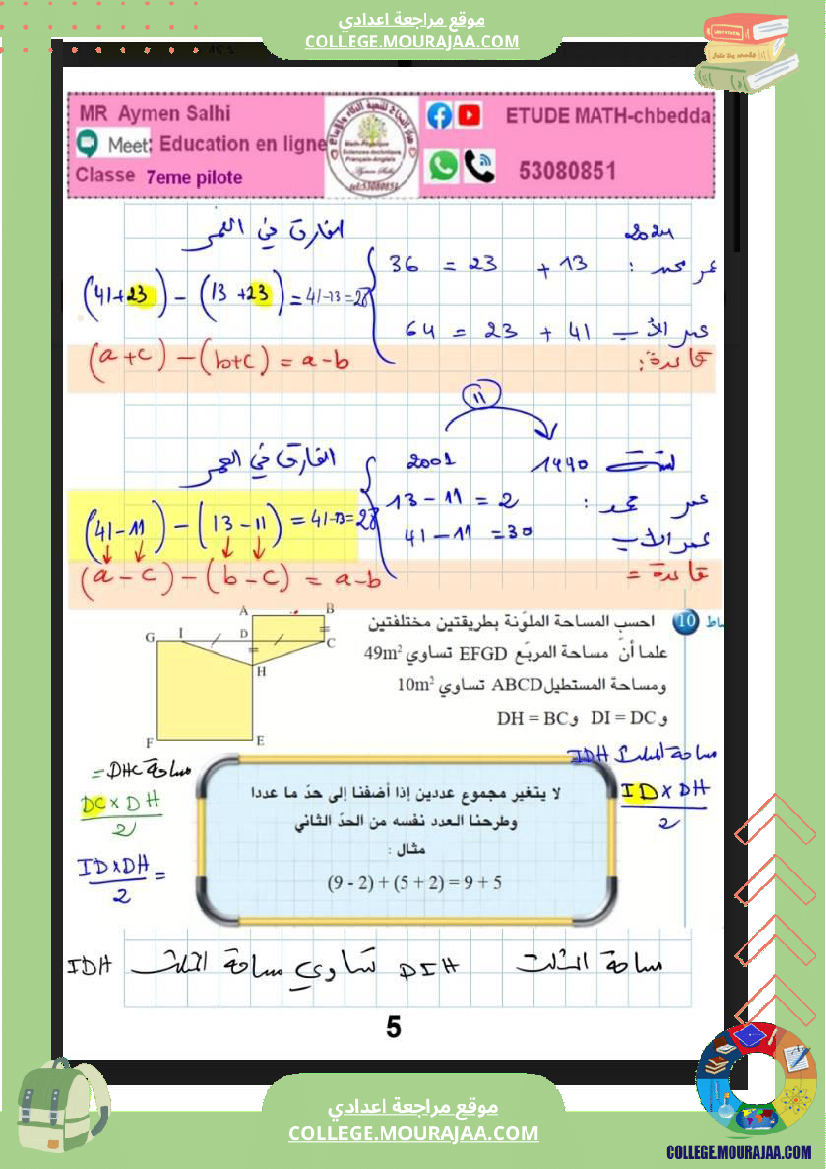 موقع مراجعة اعدادي
COLLEGE.MOURAJAA.COM
MR Aymen Salhi
Meet: Education en ligne
Classe 7eme pilote
ETUDE MATH-chbedda
53080851
2024
الفارق في العمر
عمر محمد : 13 + 23 = 36
(41+23) - (13+23) = 41-13=28
عمر الأب 41 + 23 = 64
قاعدة: (a+c) - (b+c) = a-b
11
1990 2001
الفارق في العمر
عمر محمد : 13 - 11 = 2
(41-11) - (13-11) = 41-13=28
عمر الأب 41 - 11 = 30
قاعدة = (a-c) - (b-c) = a-b
10 احسب المساحة الملوّنة بطريقتين مختلفتين
علما أنّ مساحة المربّع EFGD تساوي 49m²
ومساحة المستطيل ABCD تساوي 10m²
و DI = DC و DH = BC
A B
G I D C
H
F E
مساحة المثلث IDH
ID x DH
2
مساحة DHC =
DC x DH
2
ID x DH =
2
لا يتغير مجموع عددين إذا أضفنا إلى حدّ ما عددا
وطرحنا العدد نفسه من الحدّ الثاني
مثال :
(9 - 2) + (5 + 2) = 9 + 5
مساحة المثلث DIH تساوي مساحة المثلث IDH
5
موقع مراجعة اعدادي
COLLEGE.MOURAJAA.COM
COLLEGE.MOURAJAA.COM